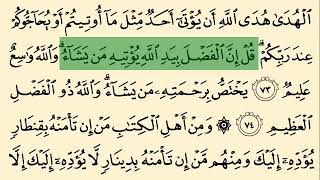 ٱلْهُدَىٰ هُدَى ٱللَّهِ أَن يُؤْتَىٰٓ أَحَدٌ مِّثْلَ مَآ أُوتِيتُمْ أَوْ يُحَآجُّوكُمْ
عِندَ رَبِّكُمْ ۗ قُلْ إِنَّ ٱلْفَضْلَ بِيَدِ ٱللَّهِ يُؤْتِيهِ مَن يَشَآءُ ۗ وَٱللَّهُ وَٰسِعٌ
عَلِيمٌ ٧٣ يَخْتَصُّ بِرَحْمَتِهِۦ مَن يَشَآءُ ۗ وَٱللَّهُ ذُو ٱلْفَضْلِ
ٱلْعَظِيمِ ٧٤ ۞ وَمِنْ أَهْلِ ٱلْكِتَٰبِ مَنْ إِن تَأْمَنْهُ بِقِنطَارٍ
يُؤَدِّهِۦٓ إِلَيْكَ وَمِنْهُم مَّنْ إِن تَأْمَنْهُ بِدِينَارٍ لَّا يُؤَدِّهِۦٓ إِلَيْكَ إِلَّا